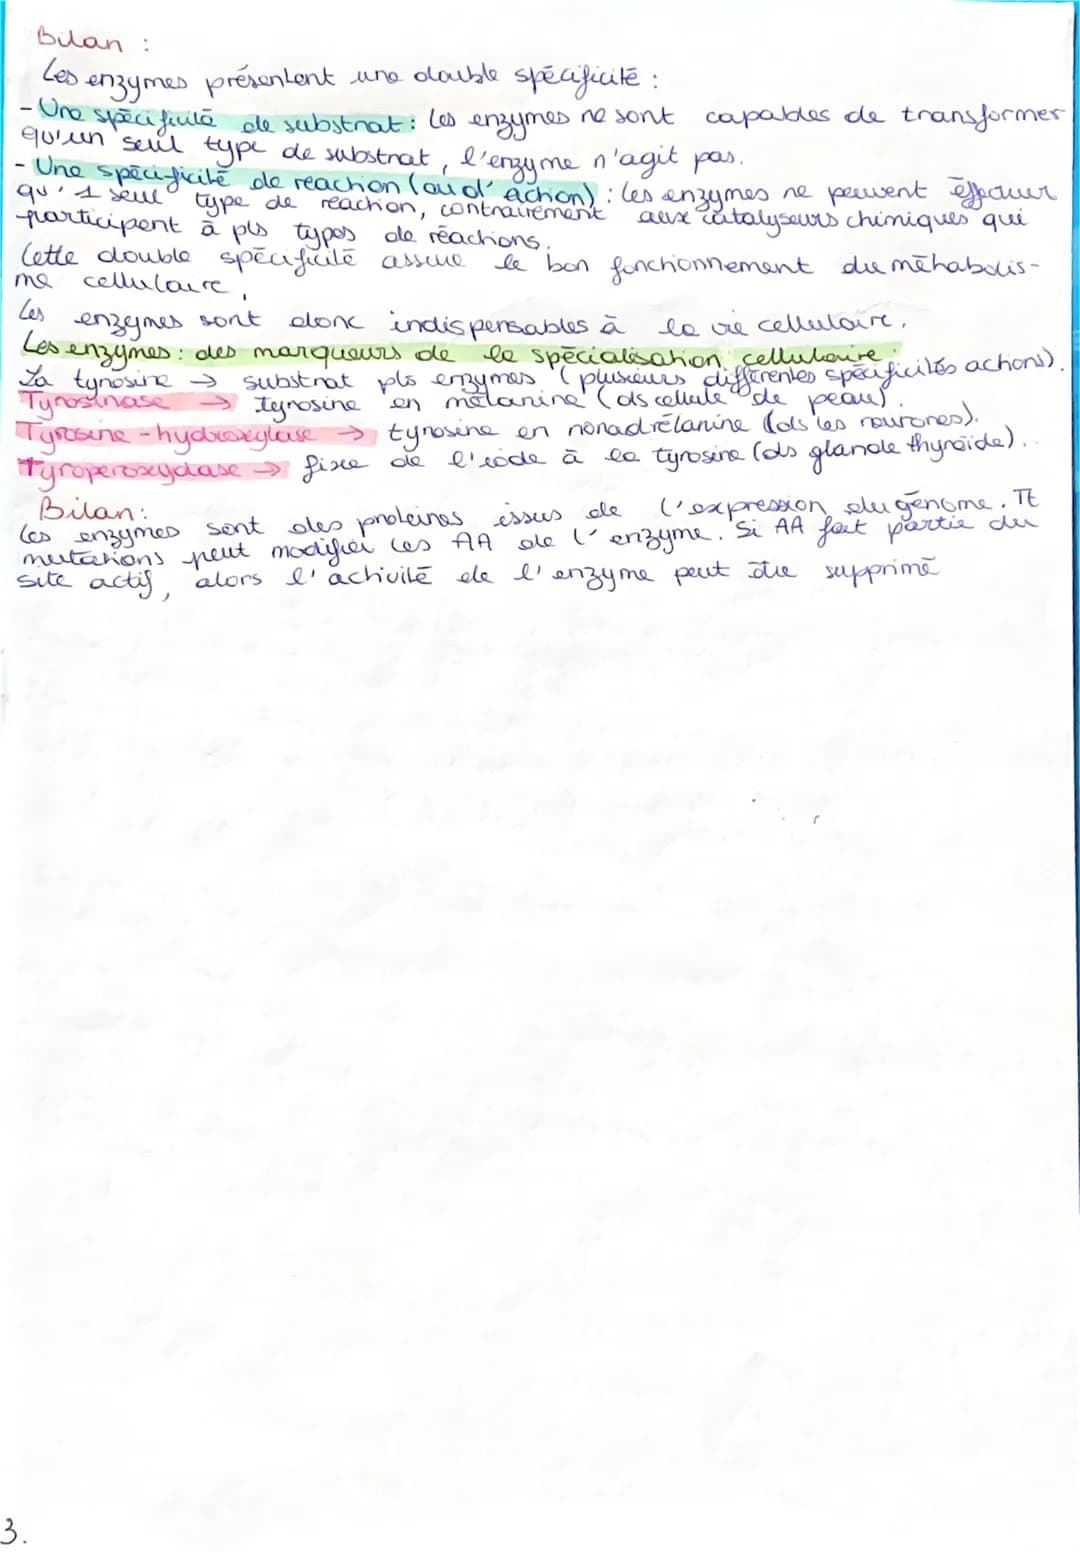 Bilan :
Les enzymes présentent une double spécificité :
- Une spécificité de substrat : les enzymes ne sont capables de transformer
qu'un seul type de substrat, l'enzyme n'agit pas.
- Une spécificité de reaction (ou d'action) : les enzymes ne peuvent effectuer
qu'1 seul type de reaction, contrairement aux catalyseurs chimiques qui
participent à pls types de réactions.
Cette double spécificité assure le bon fonctionnement du métabolis-
me cellulaire,
les enzymes sont donc indispensables à la vie cellulaire.
Les enzymes : des marqueurs de la spécialisation cellulaire :
La tyrosine → substrat pls enzymes (plusieurs différentes spécificités actions).
Tyrosinase → tyrosine en mélanine (ds cellule de peau).
Tyrosine-hydroxylase → tyrosine en nonadrélanine (ds les neurones).
Tyroperoxydase → fixe de l'iode à la tyrosine (ds glande thyroïde).
Bilan :
Les enzymes sont des protéines issus de l'expression du génome. Tt
mutations peut modifier les AA de l'enzyme. Si AA fait partie du
site actif, alors l'activité de l'enzyme peut être supprimé
3.